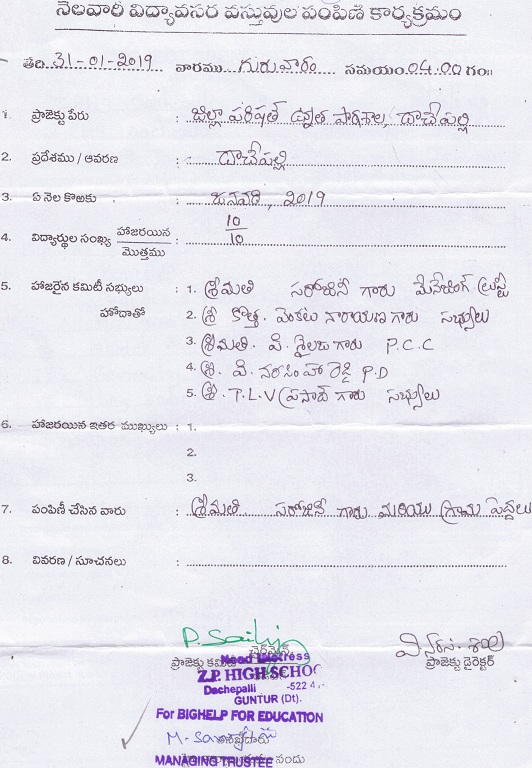 నెలవారి విద్యావసర వస్తువుల పంపిణీ కార్యక్రమం
తేది 31-01-2019 వారము గురువారం సమయం 04.00 గం॥
1. ప్రాజెక్టు పేరు : జిల్లా పరిషత్ ఉన్నత పాఠశాల, దాచేపల్లి
2. ప్రదేశము / ఆవరణ : దాచేపల్లి
3. ఏ నెల కొఱకు : జనవరి, 2019
4. విద్యార్థుల సంఖ్య హాజరయిన / మొత్తము : 10/10
5. హాజరైన కమిటీ సభ్యులు : 1. శ్రీమతి సరోజినీ గారు మేనేజింగ్ ట్రస్టీ
హోదాతో 2. శ్రీ కొత్త. వెంకట నారాయణ గారు సభ్యులు
3. శ్రీమతి. పి. శైలజ గారు P.C.C
4. శ్రీ. వి. నరసింహా రెడ్డి P.D
5. శ్రీ. T.L.V ప్రసాద్ గారు సభ్యులు
6. హాజరయిన ఇతర ముఖ్యులు : 1.
2.
3.
7. పంపిణీ చేసిన వారు : శ్రీమతి సరోజినీ గారు మరియు గ్రామ పెద్దలు
8. వివరణ / సూచనలు :
P. Sailaja
చైర్మన్
ప్రాజెక్టు కమిటీ
ప్రాజెక్టు డైరెక్టర్
Need Distress
Z.P. HIGH SCHOO
Dachepalli -522 4
GUNTUR (Dt).
For BIGHELP FOR EDUCATION
MANAGING TRUSTEE